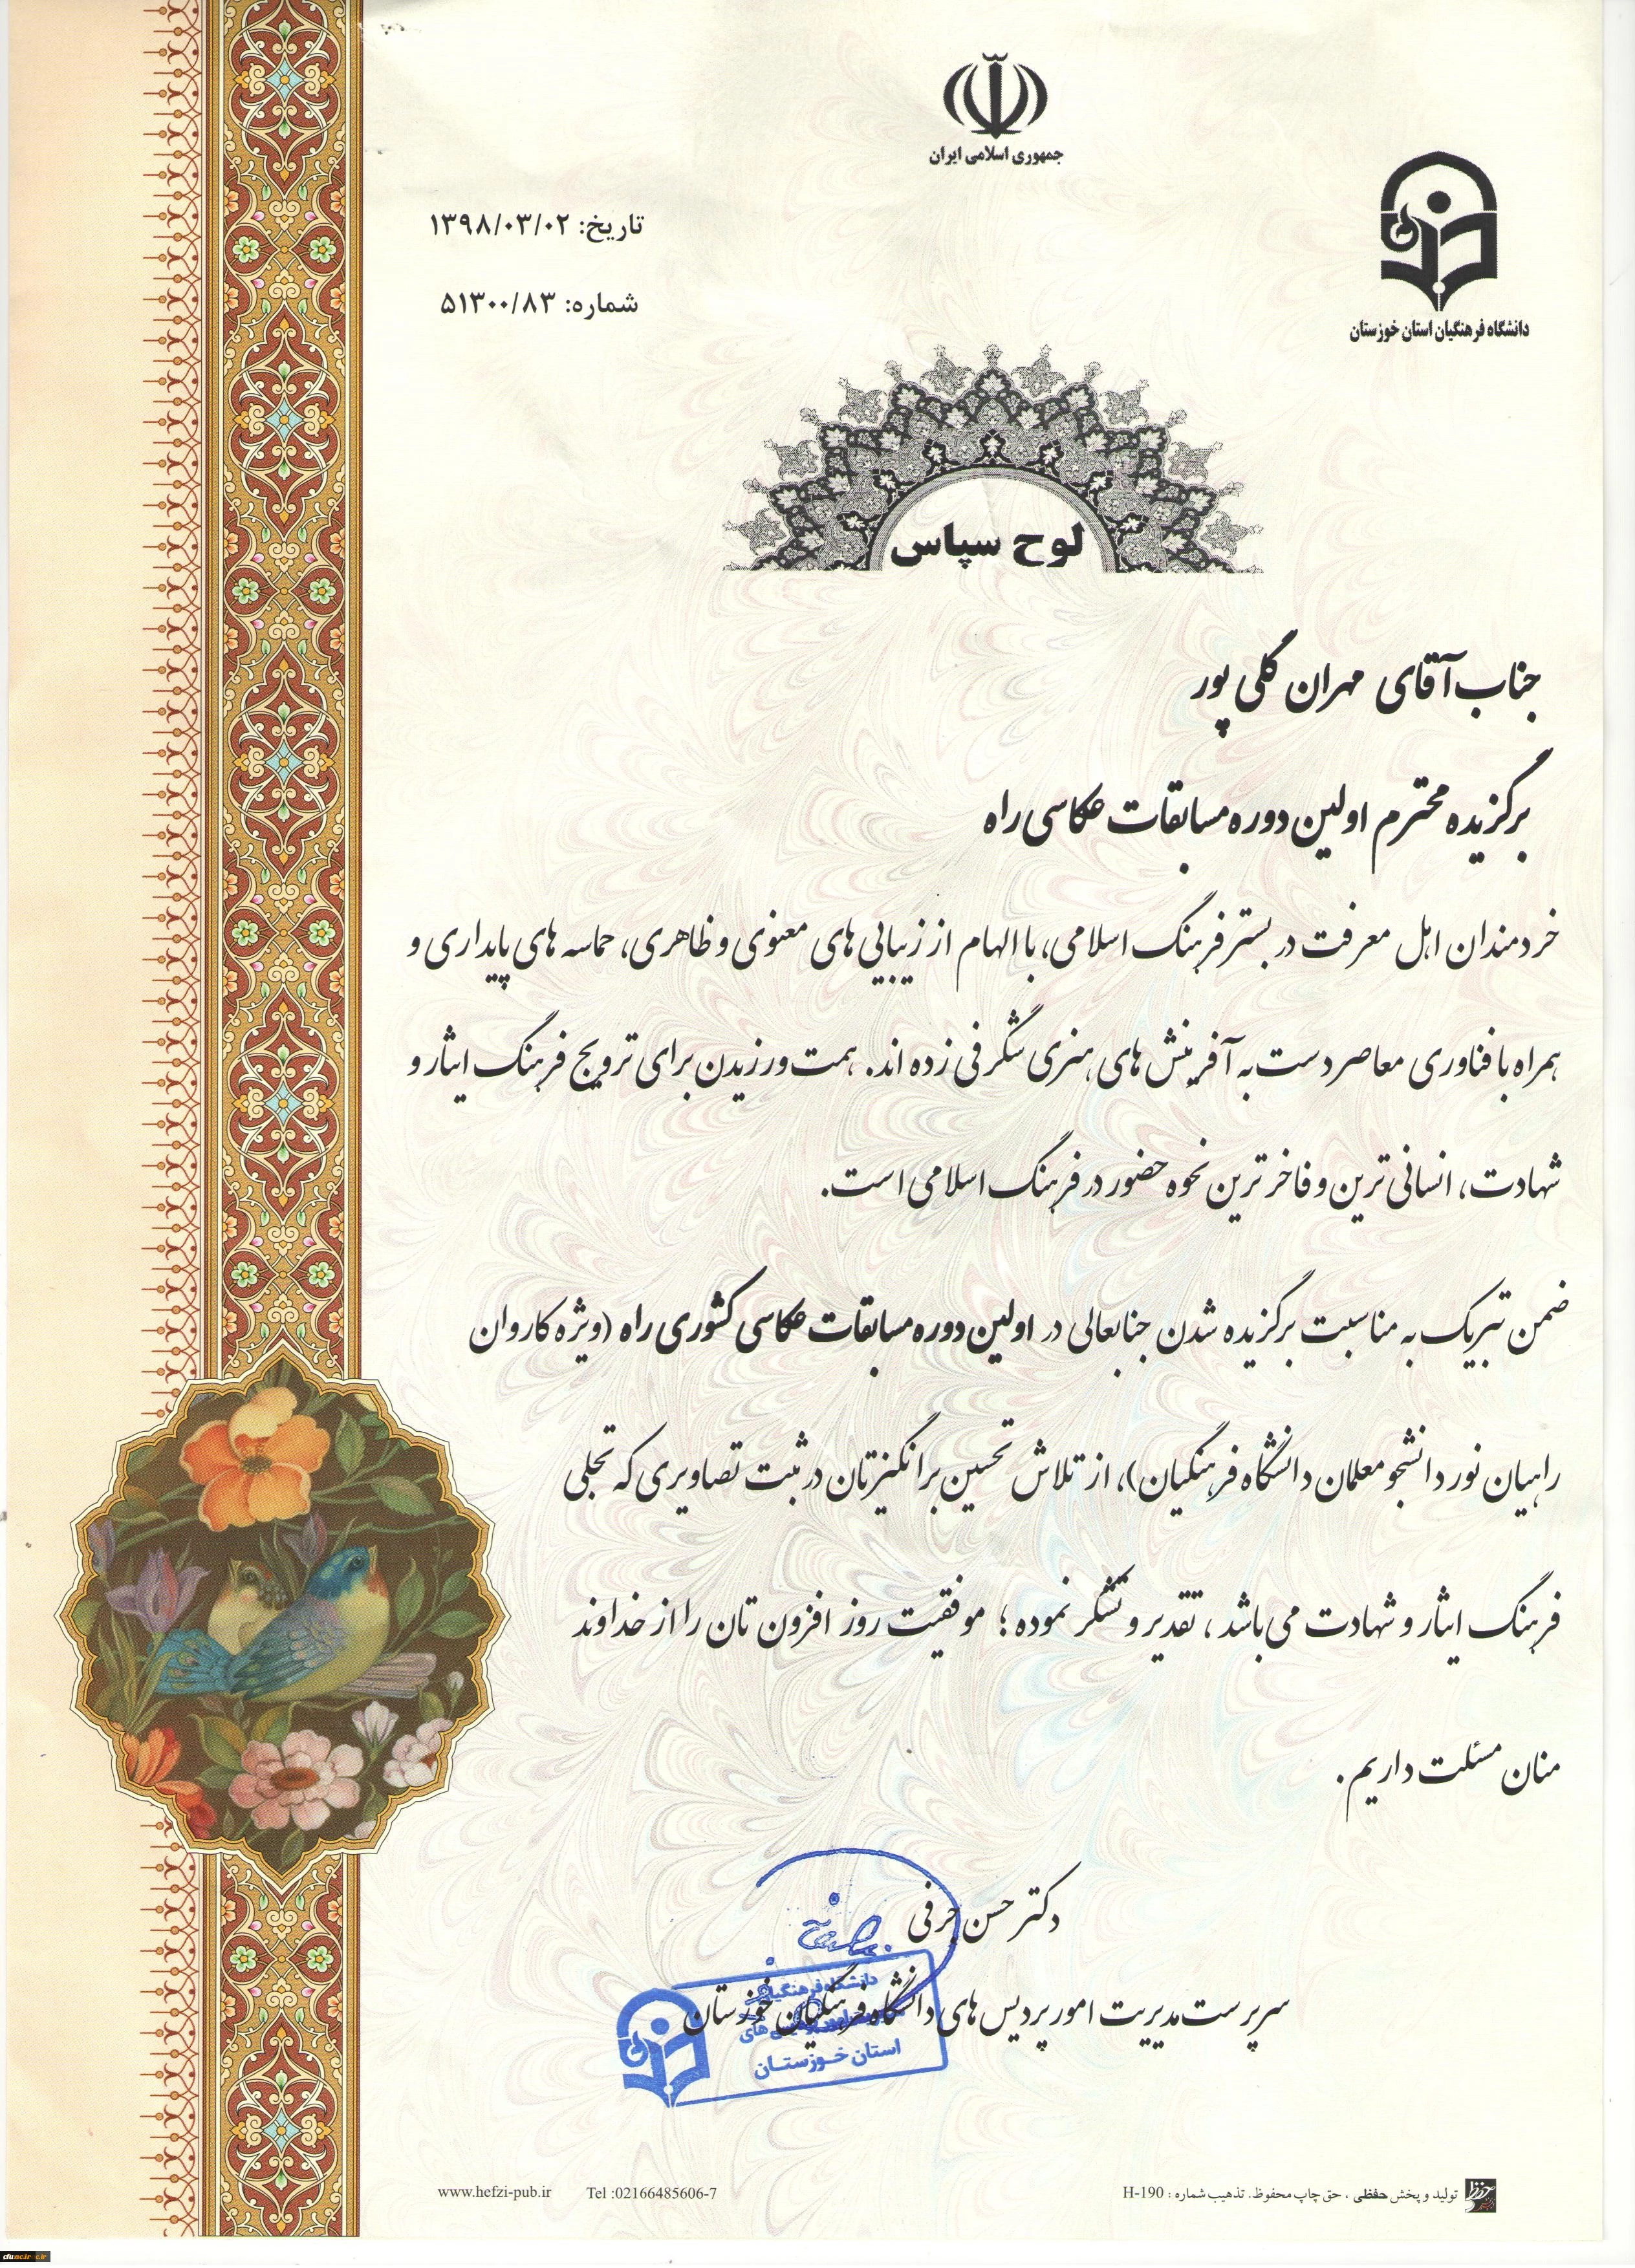 جمهوری اسلامی ایران
دانشگاه فرهنگیان استان خوزستان
تاریخ: ۱۳۹۸/۰۳/۰۲
شماره: ۵۱۳۰۰/۸۳
لوح سپاس
جناب آقای مهران گلی پور
برگزیده محترم اولین دوره مسابقات عکاسی راه
خردمندان اهل معرفت در بستر فرهنگ اسلامی، با الهام از زیبایی های معنوی و ظاهری، حماسه های پایداری و
همراه با فناوری معاصر دست به آفرینش های هنری شگرفی زده اند. همت ورزیدن برای ترویج فرهنگ ایثار و
شهادت، انسانی ترین و فاخر ترین نحوه حضور در فرهنگ اسلامی است.
ضمن تبریک به مناسبت برگزیده شدن جنابعالی در اولین دوره مسابقات عکاسی کشوری راه (ویژه کاروان
راهیان نور دانشجو معلمان دانشگاه فرهنگیان)، از تلاش تحسین برانگیزتان در ثبت تصاویری که تجلی
فرهنگ ایثار و شهادت می باشد، تقدیر و تشکر نموده؛ موفقیت روز افزون تان را از خداوند
منان مسئلت داریم.
دکتر حسن حرفی
سرپرست مدیریت امور پردیس های دانشگاه فرهنگیان خوزستان
دانشگاه فرهنگیان
استان خوزستان
تولید و پخش حفظی، حق چاپ محفوظ. تذهیب شماره : H-190
www.hefzi-pub.ir Tel :02166485606-7